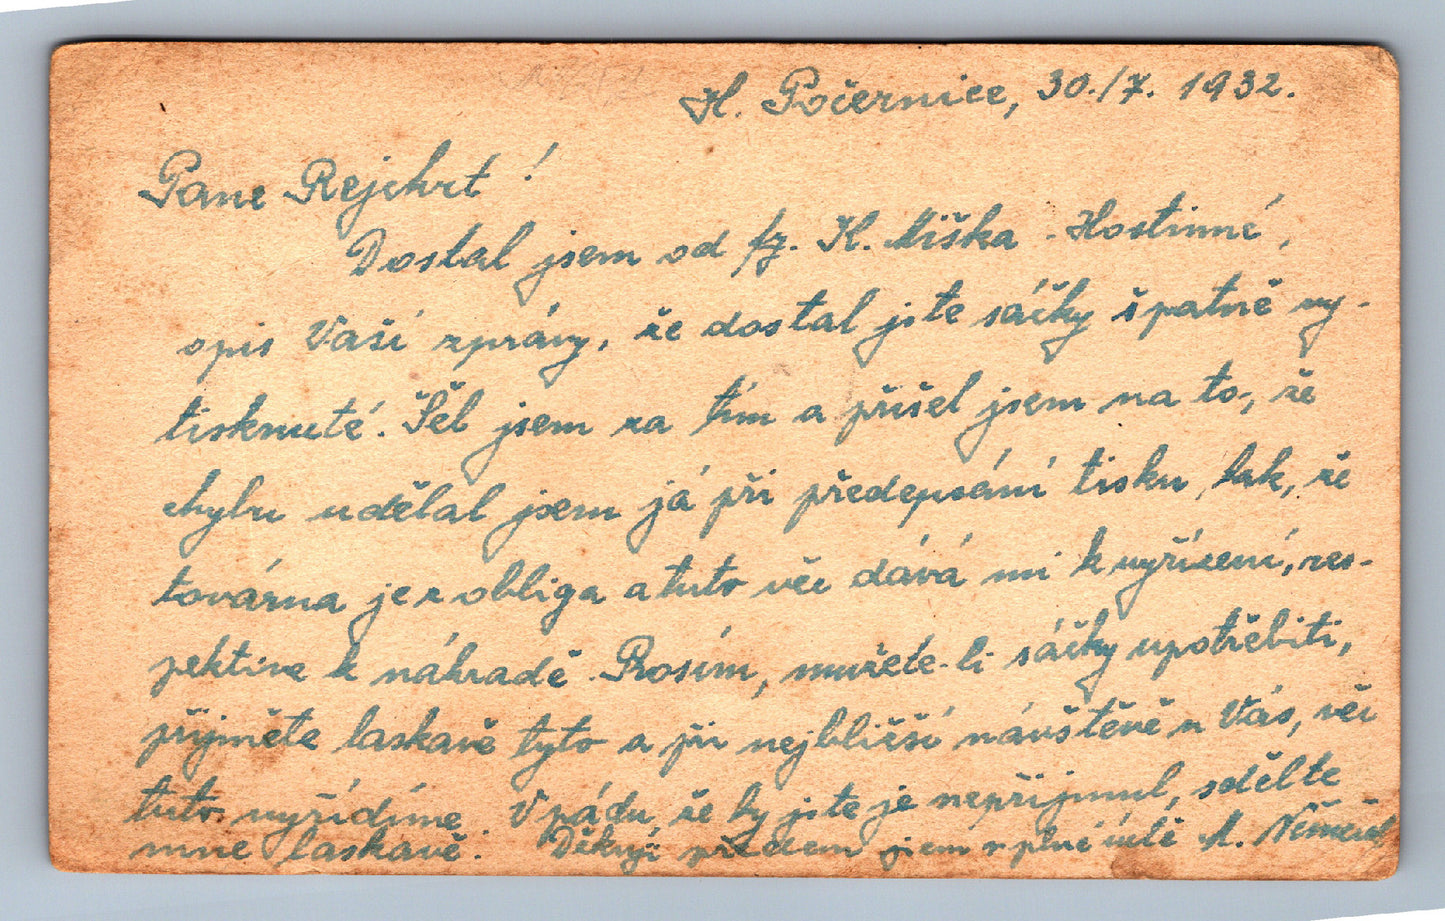 H. Počernice, 30./7. 1932.
Pane Rejchrt!
Dostal jsem od fy. K. Miška - Hostinné,
opis Vaší zprávy, že dostal jste sáčky špatně vy-
tisknuté. Šel jsem za tím a přišel jsem na to, že
chybu udělal jsem já při předepsání tisku, tak, že
továrna je z obliga a tuto věc dává mi k vyřízení, res-
pektive k náhradě. Prosím, můžete-li sáčky upotřebiti,
přijměte laskavě tyto a při nejbližší návštěvě u Vás, věc
tuto vyřídíme. V pádu, že by jste je nepřijmul, sdělte
mne laskavě. Děkuji předem jsem v plné úctě A. Němeček